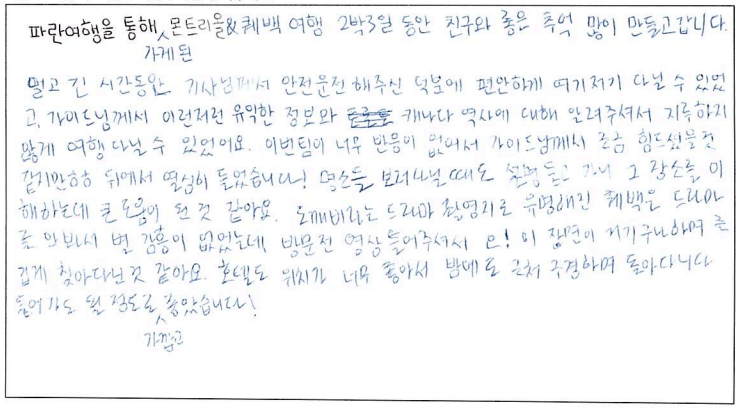 파란여행을 통해 가게된 몬트리올&퀘백 여행 2박3일 동안 친구와 좋은 추억 많이 만들고갑니다.
멀고 긴 시간동안 기사님께서 안전운전 해주신 덕분에 편안하게 여기저기 다닐 수 있었
고, 가이드님께서 이런저런 유익한 정보와 캐나다 역사에 대해 알려주셔서 지루하지
않게 여행 다닐 수 있었어요. 이번팀이 너무 반응이 없어서 가이드님께서 조금 힘드셨을것
같지만 뒤에서 열심히 들었습니다! 명소들 보러다닐 때도 설명듣고 가니 그 장소를 이
해하는데 큰 도움이 된 것 같아요. 도깨비라는 드라마 촬영지로 유명해진 퀘백은 드라마
를 안봐서 별 감흥이 없었는데, 방문전 영상 틀어주셔서 오! 이 장면이 여기구나하며 즐
겁게 찾아다닌것 같아요. 호텔도 위치가 너무 좋아서 밤에도 근처 구경하며 돌아다니다
들어가도 될 정도로 가깝고 좋았습니다!